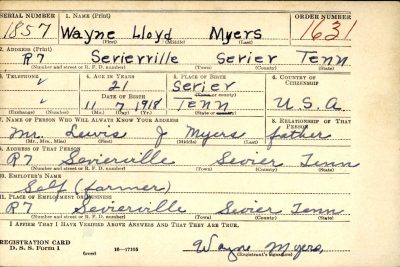 SERIAL NUMBER 1. NAME (Print) ORDER NUMBER
1857 Wayne Lloyd Myers 1631
(First) (Middle) (Last)
2. ADDRESS (Print)
R7 Sevierville Sevier Tenn
(Number and street or R. F. D. number) (Town) (County) (State)
3. TELEPHONE 4. AGE IN YEARS 5. PLACE OF BIRTH 6. COUNTRY OF CITIZENSHIP
21 Sevier
DATE OF BIRTH (Town or county)
11 7 1918 Tenn U.S.A.
(Exchange) (Number) (Mo.) (Day) (Yr.) (State or country)
7. NAME OF PERSON WHO WILL ALWAYS KNOW YOUR ADDRESS 8. RELATIONSHIP OF THAT PERSON
Mr. Lewis J Myers father
(Mr., Mrs., Miss) (First) (Middle) (Last)
9. ADDRESS OF THAT PERSON
R7 Sevierville Sevier Tenn
(Number and street or R. F. D. number) (Town) (County) (State)
10. EMPLOYER'S NAME
Self (farmer)
11. PLACE OF EMPLOYMENT OR BUSINESS
R7 Sevierville Sevier Tenn
(Number and street or R. F. D. number) (Town) (County) (State)
I AFFIRM THAT I HAVE VERIFIED ABOVE ANSWERS AND THAT THEY ARE TRUE.
REGISTRATION CARD
D. S. S. Form 1 (over) 16—17105
Wayne Myers
(Registrant's signature)